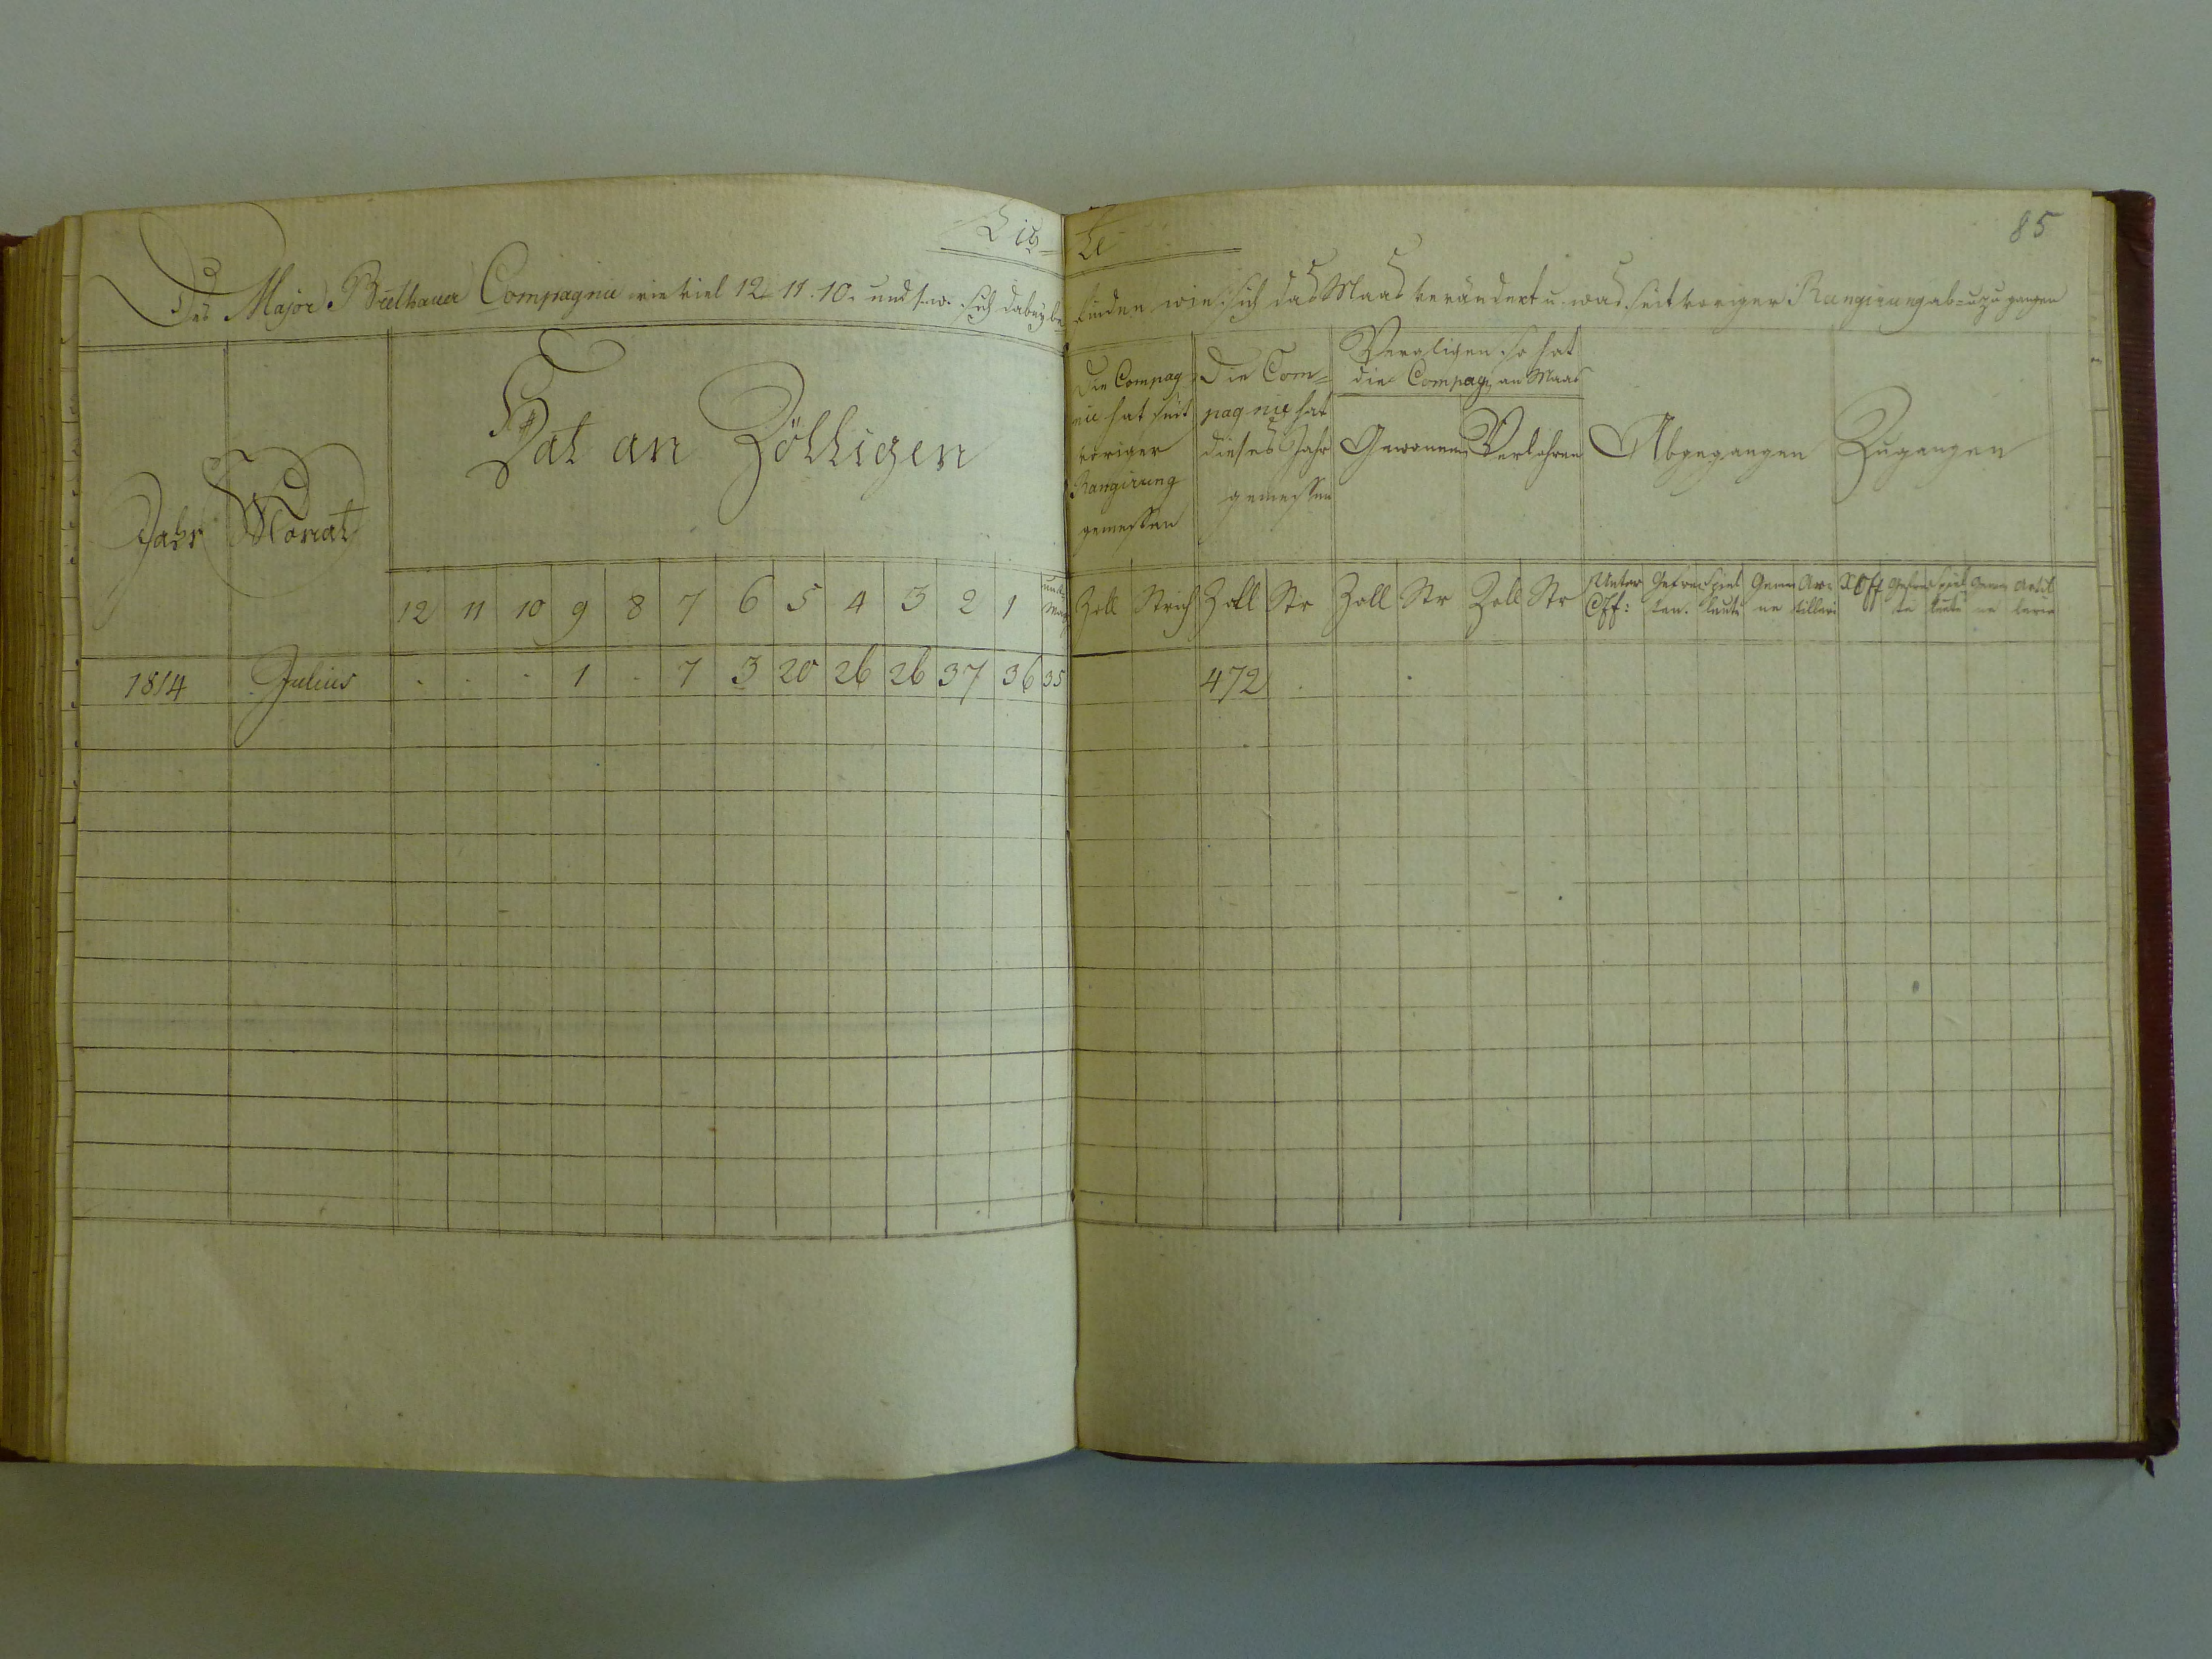 Lis= te
85
Des Major Bülhauer Compagnie wie viel 12. 11. 10. und s. w. sich dabey be= finden wie sich das Maas verändert u. was seit voriger Rangirung ab= u. zu gangen
Jahr
Monat
Hat an Zölligen
Die Compag
nie hat seit
voriger
Rangirung
gemessen
Die Com=
pagnie hat
dieses Jahr
gemessen
Vergligen so hat
die Compag. an Maas
Gewonnen
Verlohren
Abgegangen
Zugangen
12 11 10 9 8 7 6 5 4 3 2 1 unter Maas
Zoll Strich Zoll Str Zoll Str Zoll Str
Unter Off: Gefrei ten. Spiel leute Gemei ne Ar= tilleri
Off Gefrei te Spiel leute Gemei ne Artil lerie
1814 Julius . . . 1 . 7 3 20 26 26 37 36 35 472 . .